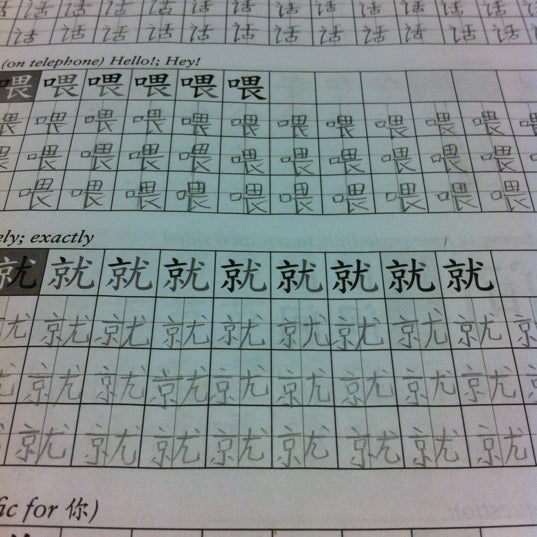 话 话 话 话 话 话 话 话 话 话 话 话 话
话 话 话 话 话 话 话 话 话 话 话 话 话 话
(on telephone) Hello!; Hey!
喂 喂 喂 喂 喂 喂
喂 喂 喂 喂 喂 喂 喂 喂 喂 喂 喂
喂 喂 喂 喂 喂 喂 喂 喂 喂 喂 喂
喂 喂 喂 喂 喂 喂 喂 喂 喂 喂 喂
exactly
就 就 就 就 就 就 就 就 就
就 就 就 就 就 就 就 就 就
就 就 就 就 就 就 就 就
就 就 就 就 就 就 就 就
for 你)